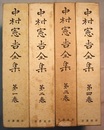 中村憲吉全集 第一巻
中村憲吉全集 第二巻
中村憲吉全集 第三巻
中村憲吉全集 第四巻